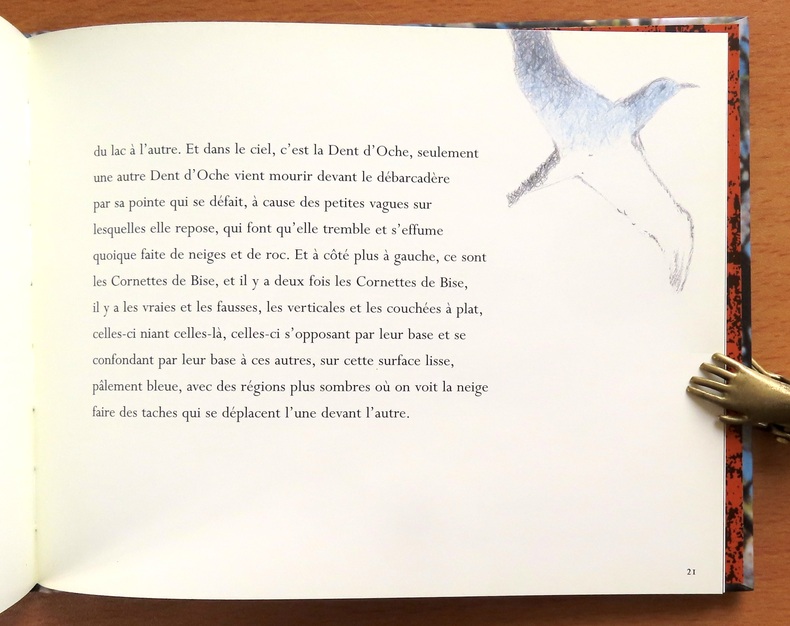 du lac à l'autre. Et dans le ciel, c'est la Dent d'Oche, seulement
une autre Dent d'Oche vient mourir devant le débarcadère
par sa pointe qui se défait, à cause des petites vagues sur
lesquelles elle repose, qui font qu'elle tremble et s'effume
quoique faite de neiges et de roc. Et à côté plus à gauche, ce sont
les Cornettes de Bise, et il y a deux fois les Cornettes de Bise,
il y a les vraies et les fausses, les verticales et les couchées à plat,
celles-ci niant celles-là, celles-ci s'opposant par leur base et se
confondant par leur base à ces autres, sur cette surface lisse,
pâlement bleue, avec des régions plus sombres où on voit la neige
faire des taches qui se déplacent l'une devant l'autre.
21